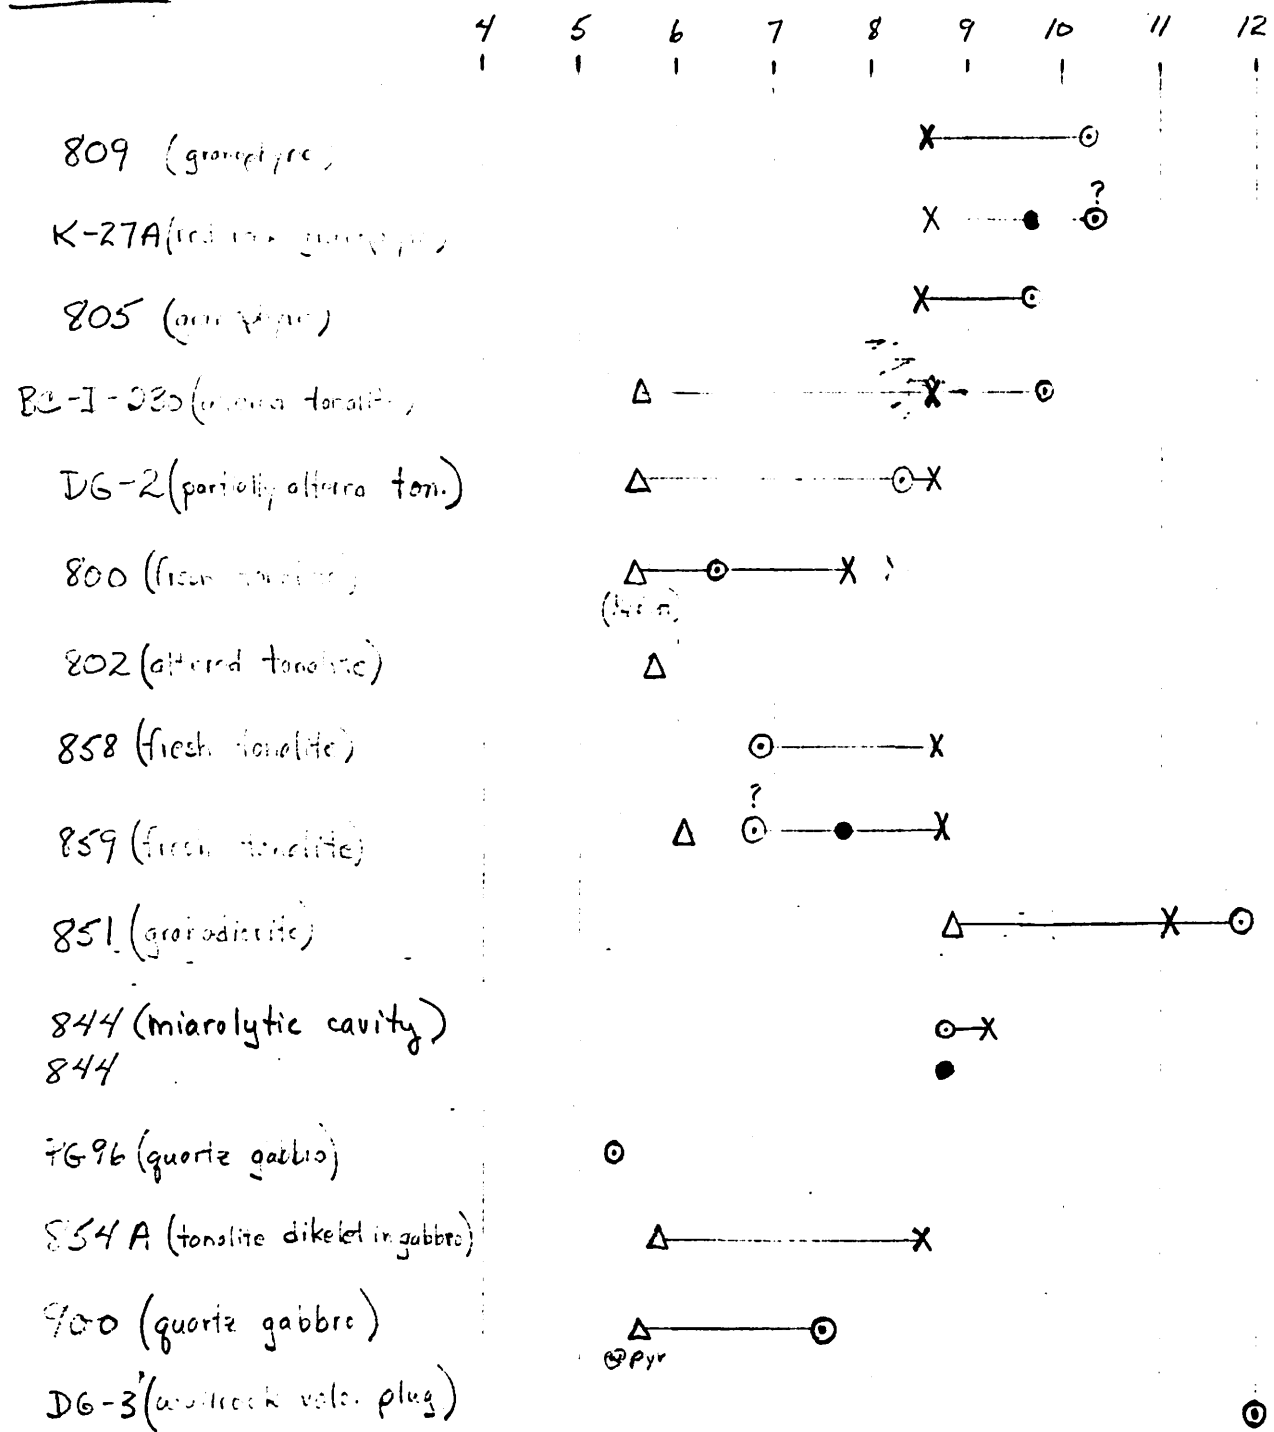 4 5 6 7 8 9 10 11 12
809 (granophyre)
?
K-27A (red rock granophyre)
805 (granophyre)
BC-I- (altered tonalite)
DG-2 (partially altered ton.)
800 (fresh tonalite)
802 (altered tonalite)
858 (fresh tonalite)
?
859 (fresh tonalite)
851 (granodiorite)
844 (miarolytic cavity)
844
(quartz gabbro)
854A (tonalite dikelet in gabbro)
900 (quartz gabbro)
pyr
DG-3 (wallrock volc. plug)